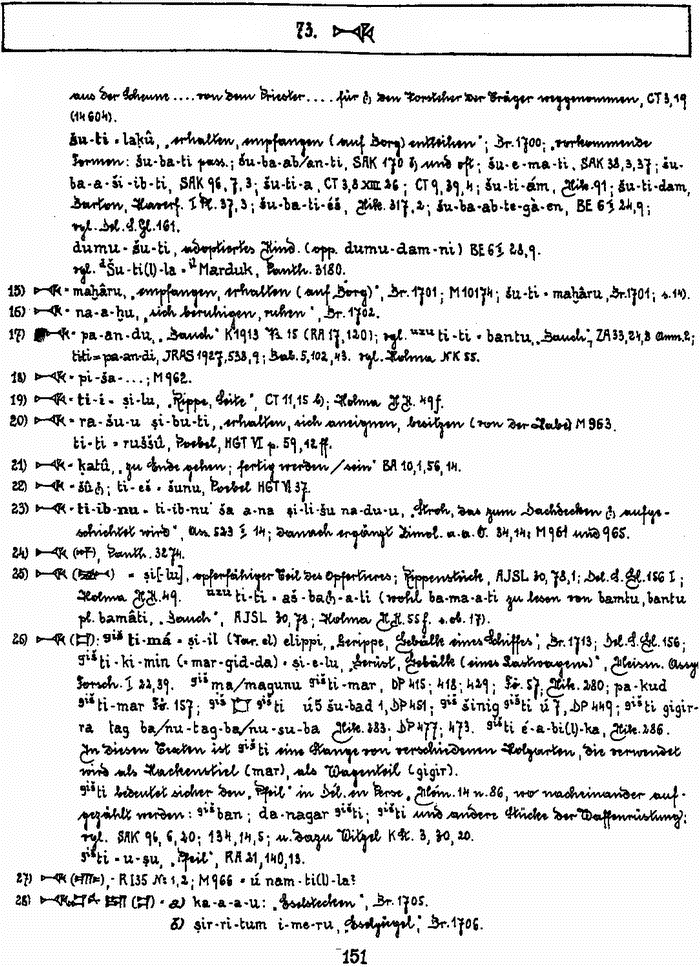 73.
aus der Scheune .... von dem Priester .... für den Vorsteher der Träger weggenommen, CT 3,19
(14604).
šu-ti = laḳû, „erhalten, empfangen (auf Borg) entleihen"; Br. 1700; vorkommende
Formen: šu-ba-ti pass.; šu-ba-ab/an-ti, SAK 170 und oft; šu-e-ma-ti, SAK 38,3,37; šu-
ba-a-ši-ib-ti, SAK 96,7,3; šu-ti-a, CT 3,8 XIII 26; CT 9,39,4; šu-ti-ám, Nik. 91; šu-ti-dam,
Barton, Haverf. I Pl. 37,3; šu-ba-ti-éš, Nik. 317,2; šu-ba-ab-te-gà-en, BE 6 24,9;
vgl. Del. S.Gl. 161.
dumu-šu-ti, adoptiertes Kind. (opp. dumu-dam-ni) BE 6 28,9.
vgl. ᵈŠu-ti(l)-la = ⁱˡMarduk, Panth. 3180.
15) = maḫâru, „empfangen, erhalten (auf Borg)", Br. 1701; M 10174; šu-ti = maḫâru, Br. 1701; s. 14).
16) = na-a-ḫu, „sich beruhigen, ruhen", Br. 1702.
17) = pa-an-du, „Bauch" K 1913 Vs. 15 (RA 17,120); vgl. ᵘᶻᵘti-ti = bantu, „Bauch", ZA 33,24,8 Anm. 2;
titi = pa-an-di, JRAS 1927,538,9; Bab. 5,102,43. vgl. Holma NK 55.
18) = pi-ša-...; M 962.
19) = ti-i = ṣi-lu, „Rippe, Seite", CT 11,15; Holma 49f.
20) = ra-šu-u ṣi-bu-ti, „erhalten, sich aneignen, besitzen (von der Habe) M 963.
ti-ti = ruššû, Poebel, HGT VI p. 59,12ff.
21) = ḳatû, „zu Ende gehen; fertig werden/sein" BA 10,1,56,14.
22) = šû; ti-eš = šunu, Poebel HGT VI 37.
23) = ti-ib-nu = ti-ib-nu ša a-na ṣi-li-šu na-du-u, „Stroh, das zum Dachdecken aufge-
schichtet wird", Ass. 523 I 14; danach ergänzt Zimol. a.a.O. 34,14; M 961 und 965.
24) Panth. 3274.
25) = ṣi[-lu], opferfähiger Teil des Opfertieres; Rippenstück, AJSL 30,73,1; Del. S.Gl. 156 I;
Holma 49. ᵘᶻᵘti-ti = aš-ba-a-ti (wohl ba-ma-a-ti zu lesen von bamtu, bantu
pl. bamâti, „Bauch", AJSL 30,73; Holma 55f. s. ob. 17).
26) ᵍⁱšti-má = ṣi-il (Var. el) elippi, „Gerippe, Gebälke eines Schiffes", Br. 1713; Del. S.Gl. 156;
ᵍⁱšti-ki-min (= mar-gid-da) = ṣi-e-lu, „Gerüst, Gebälke (eines Lastwagens)", Meissn. Assyr.
Forsch. I 22,39. ᵍⁱšma/magunu ᵍⁱšti-mar, DP 415; 418; 429; Fö. 57, Nik. 280; pa-kud
ᵍⁱšti-mar Fö. 157; ᵍⁱš ᵍⁱšti ú 5 šu-bad 1, DP 451; ᵍⁱššinig ᵍⁱšti ú 7, DP 449; ᵍⁱšti gigir-
ra tag ba/nu-tag-ba/nu-su-ba Nik. 283; DP 477; 473. ᵍⁱšti é-a-bi(l)-ka, Nik. 286.
In diesen Texten ist ᵍⁱšti eine Stange von verschiedenen Holzarten, die verwendet
wird als Hackenstiel (mar), als Wagenteil (gigir).
ᵍⁱšti bedeutet sicher den „Pfeil" in Dél. en Perse, Mém. 14 n. 86, wo nacheinander auf-
gezählt werden: ᵍⁱšban; da-nagar ᵍⁱšti; ᵍⁱšti und andere Stücke der Waffenrüstung;
vgl. SAK 96,6,20; 134,14,5; u. dazu Witzel K St. 3,30,20.
ᵍⁱšti = u-ṣu, „Pfeil", RA 21,140,13.
27) = R I 35 № 1,2; M 966 = ú nam-ti(l)-la?
28) = a) ka-a-a-u: „Eselstecken", Br. 1705.
b) ṣir-ri-tum i-me-ru, „Eselzügel", Br. 1706.
151